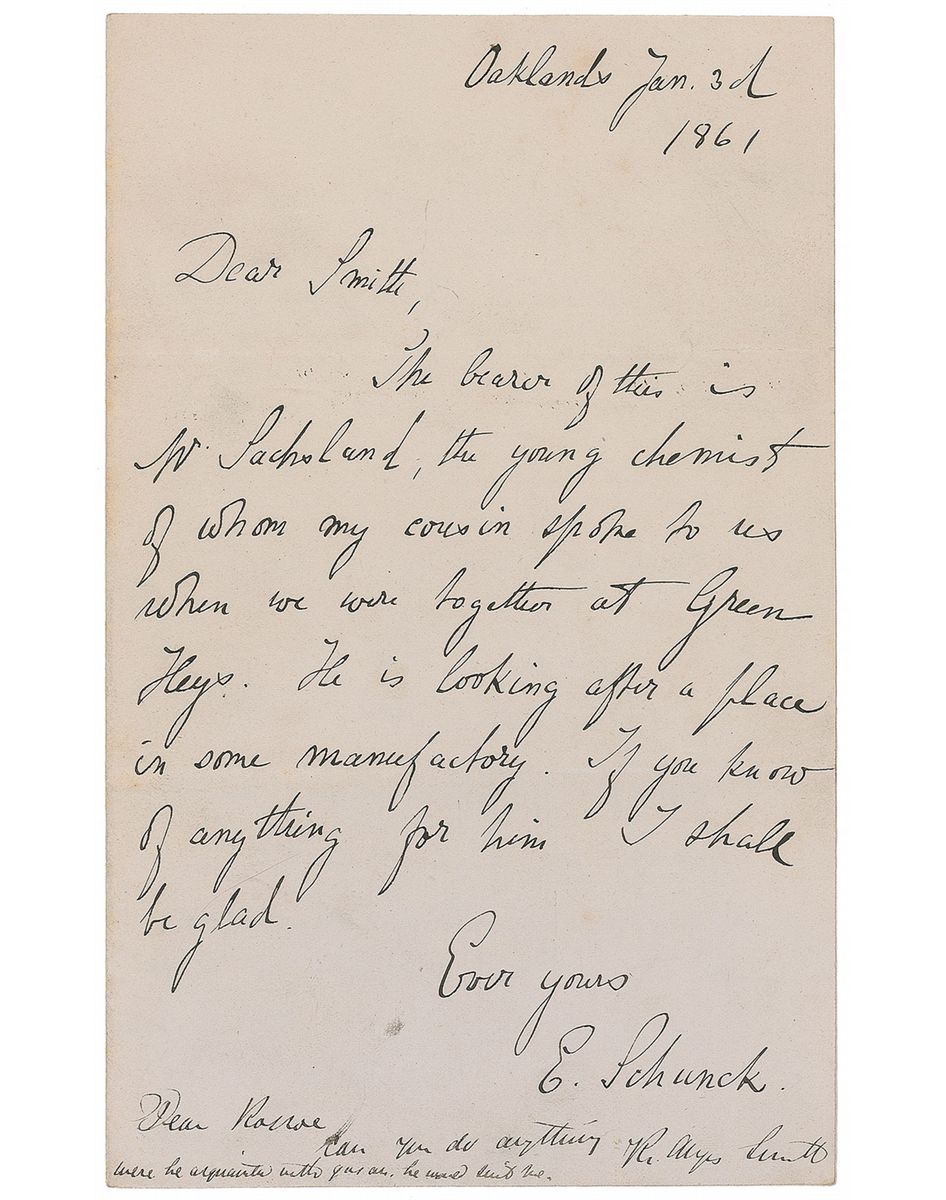 Oaklands Jan. 3d
1861
Dear Smith,
The bearer of this is
Mr Sachsland, the young chemist
of whom my cousin spoke to us
when we were together at Green
Heys. He is looking after a place
in some manufactory. If you know
of anything for him I shall
be glad.
Ever yours
E. Schunck.
Dear Roscoe
Can you do anything R. Angus Smith
were he acquainted with gas an. he would suit me.